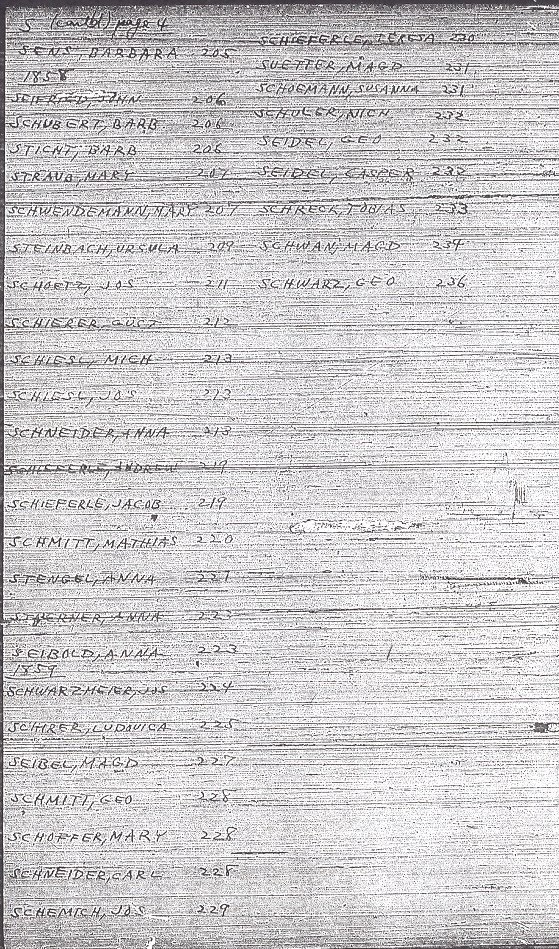 S (contd) page 4
SENS, BARBARA 205
1858
SEIFRIED, JOHN 206
SCHUBERT, BARB 206
STICHT, BARB 206
STRAUB, MARY 207
SCHWENDEMANN, MARY 207
STEINBACH, URSULA 209
SCHOETZ, JOS 211
SCHIERER, GUST 212
SCHIESL, MICH 213
SCHIESL, JOS 213
SCHNEIDER, ANNA 213
SCHIEFERLE, ANDREW 219
SCHIEFERLE, JACOB 219
SCHMITT, MATHIAS 220
STENGEL, ANNA 221
ANNA 222
SEIBOLD, ANNA 223
1859
SCHWARZMEIER, JOS 224
SCHRER, LUDOVICA 225
SEIBEL, MAGD 227
SCHMITT, GEO 228
SCHOFFER, MARY 228
SCHNEIDER, CARL 228
SCHEMICH, JOS 229
SCHIEFERLE, TERESA 230
SUETTER, MAGD 231
SCHOEMANN, SUSANNA 231
SCHULER, NICH 232
SEIDEL, GEO 232
SEIDEL, CASPER 232
SCHRECK, TOBIAS 233
SCHWAN, MAGD 234
SCHWARZ, GEO 236